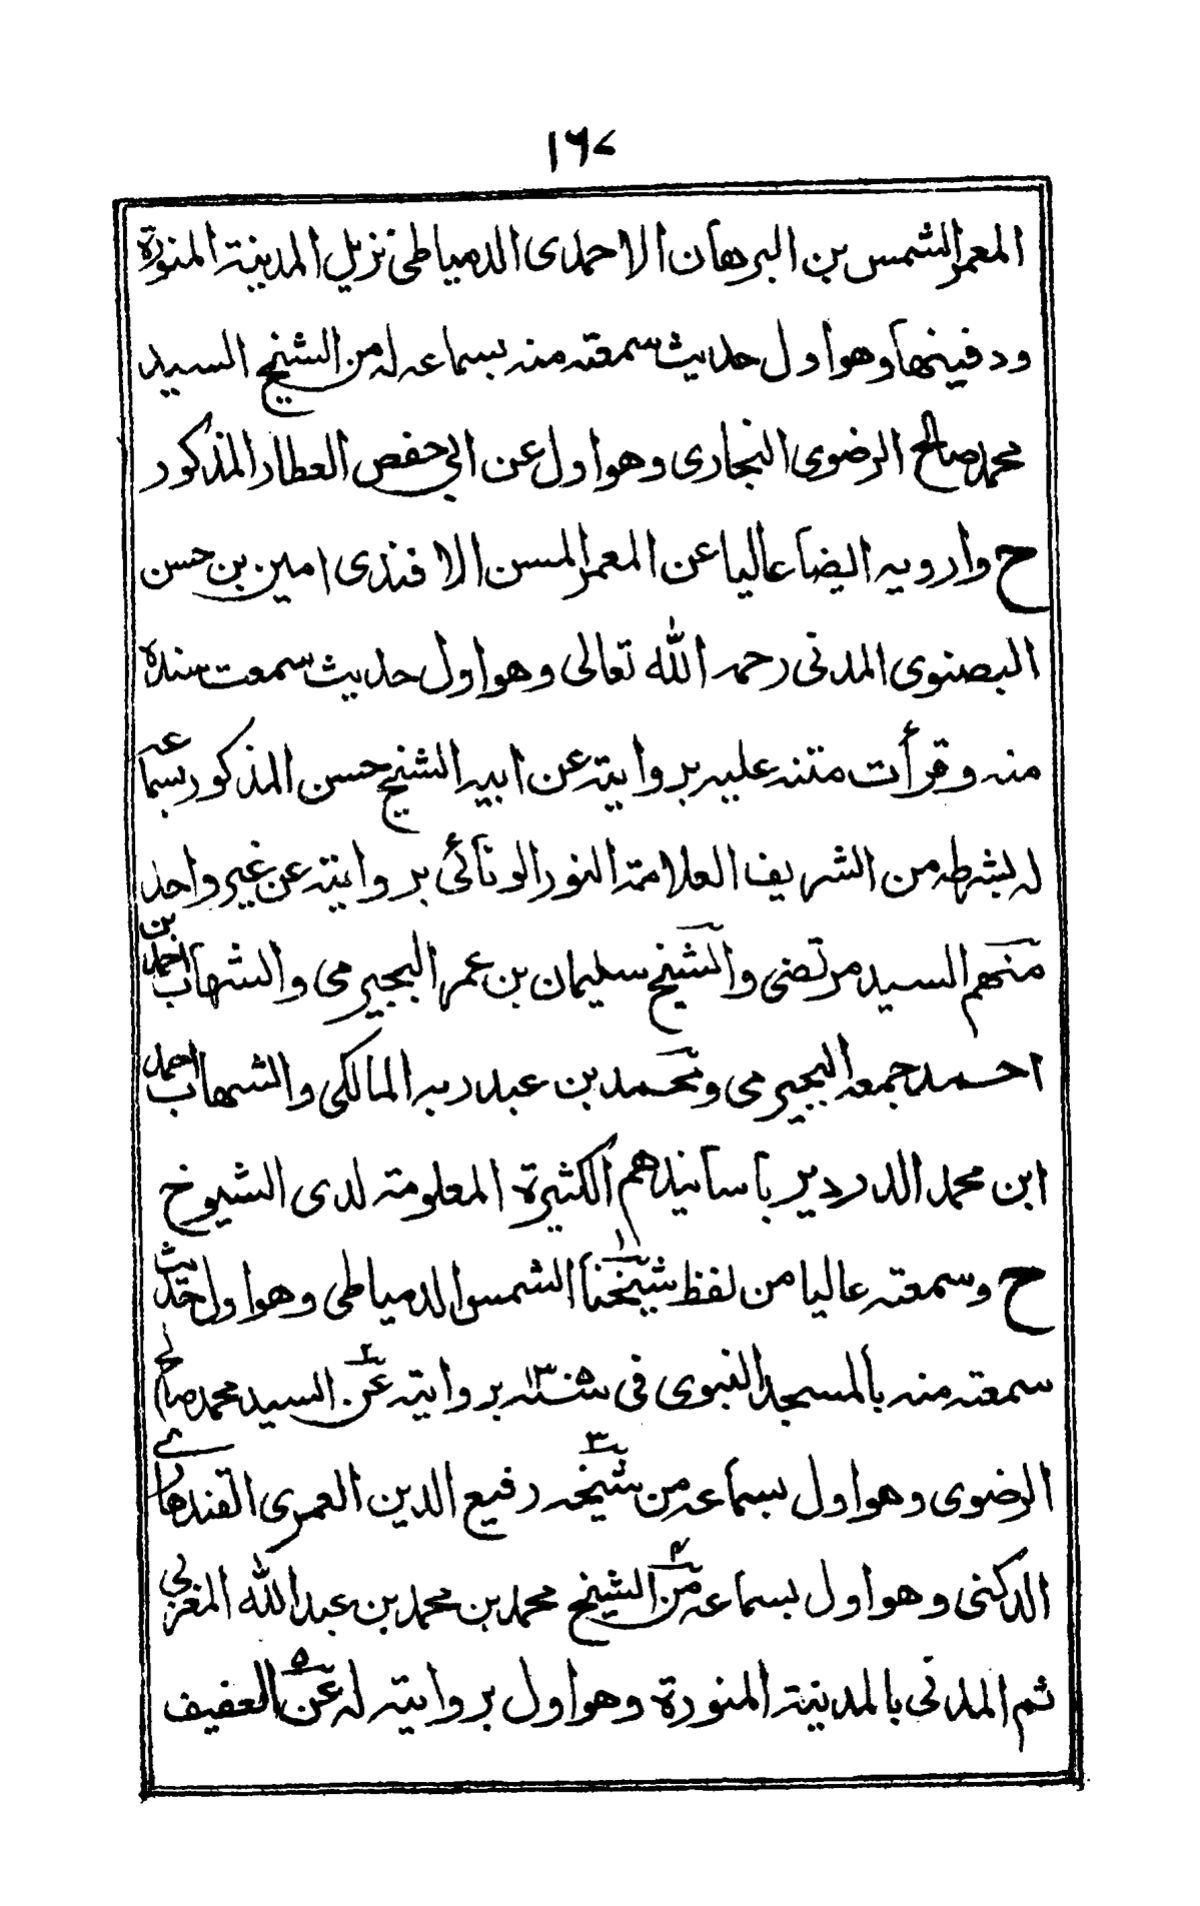 ١٦٧
المعمر الشمس بن البرهان الاحمدى الدمياطى نزيل المدينة المنورة
ودفينها وهو اول حديث سمعته منه بسماعه له من الشيخ السيد
محمد صالح الرضوى البخارى وهو اول عن ابي حفص العطار المذكور
ح وارويه ايضا عاليا عن المعمر المسن الافندى امين بن حسن
البصنوى المدنى رحمه الله تعالى وهو اول حديث سمعت سنده
منه وقرأت متنه عليه بروايته عن ابيه الشيخ حسن المذكور بسماعه
له بشرطه من الشريف العلامة النور الونائى بروايته عن غير واحد
منهم السيد مرتضى والشيخ سليمان بن عمر البجيرمى والشهاب احمد بن
احمد جمعه البجيرمى ومحمد بن عبد ربه المالكى والشهاب احمد
ابن محمد الدردير بأسانيدهم الكثيرة المعلومة لدى الشيوخ
ح وسمعته عاليا من لفظ شيخنا ١ الشمس الدمياطى وهو اول حديث
سمعته منه بالمسجد النبوى فى سنة بروايته عن ٢ السيد محمد صالح
الرضوى وهو اول بسماعه من شيخه ٣ رفيع الدين العمرى القندهارے
الدكنى وهو اول بسماعه من ٤ الشيخ محمد بن محمد بن عبد الله المغربي
ثم المدنى بالمدينة المنورة وهو اول بروايته له عن ٥ العفيف